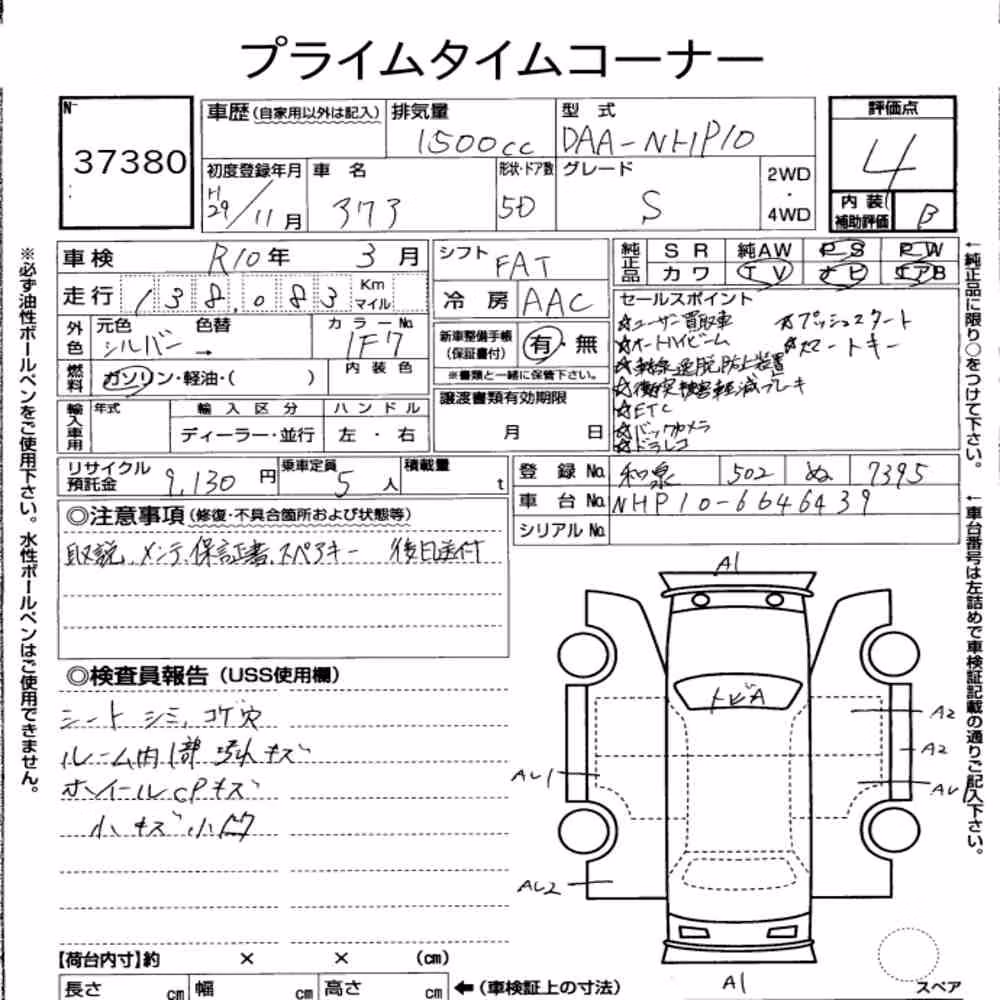 プライムタイムコーナー
No 37380
車歴(自家用以外は記入) 排気量 1500cc 型式 DAA-NHP10 評価点 4
初度登録年月 H29/11月 車名 373 形状・ドア数 5D グレード S 2WD・4WD 内装補助評価 B
※必ず油性ボールペンをご使用下さい。水性ボールペンはご使用できません。
車検 R10年 3月
走行 138,083 Km マイル
外色 元色 色替 シルバー → カラーNo. 1F7
燃料 ガソリン・軽油・( ) 内装色
輸入車用 年式 輸入区分 ハンドル
ディーラー・並行 左・右
リサイクル預託金 9,130円 乗車定員 5人 積載量 t
シフト FAT
冷房 AAC
新車整備手帳(保証書付) 有・無
※書類と一緒に保管下さい。
譲渡書類有効期限
月 日
純正品 SR 純AW PS PW
カワ TV ナビ エアB
セールスポイント
☆ユーザー買取車 ☆プッシュスタート
☆オートハイビーム ☆スマートキー
☆車線逸脱防止装置
☆衝突被害軽減ブレーキ
☆ETC
☆バックカメラ
☆ドラレコ
登録No. 和泉 502 ぬ 7395
車台No. NHP10-6646439
シリアルNo.
←純正品に限り○をつけて下さい。
←車台番号は左詰めで車検証記載の通りご記入下さい。
◎注意事項(修復・不具合箇所および状態等)
取説、メンテ、保証書、スペアキー 後日送付
◎検査員報告(USS使用欄)
シートシミ、コゲ穴
ルーム内1部 キズ
ホイールCPキズ
小キズ小凹
A1
トビA
A2
A2
AU1
AU
AU2
A1
スペア
【荷台内寸】約 × × (cm)
長さ cm 幅 cm 高さ cm ←(車検証上の寸法)